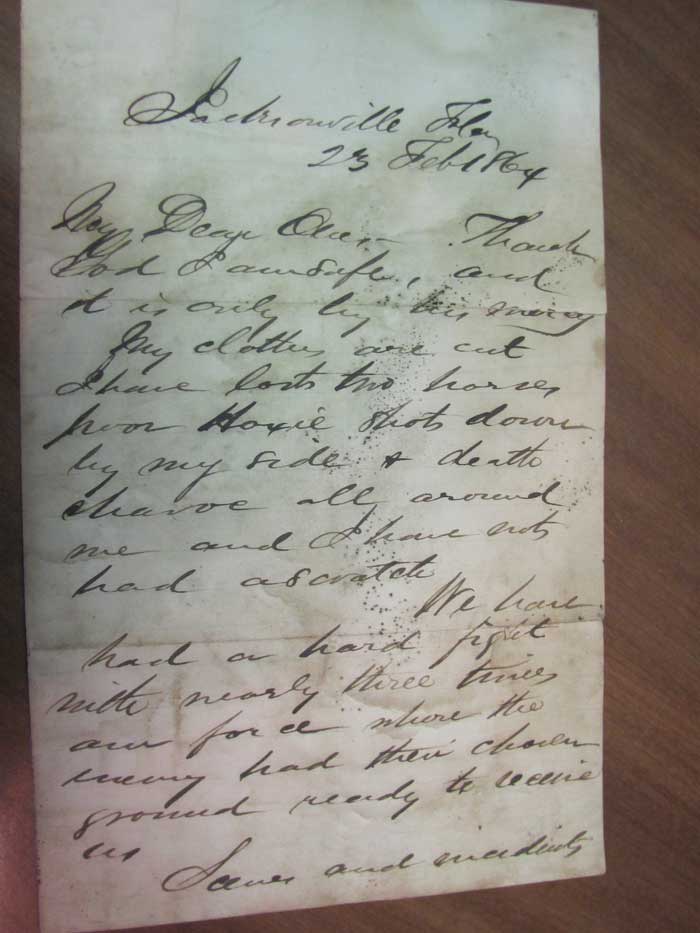 Jacksonville Fla
23 Feb 1864
My Dear Thank
God I am safe, and
it is only by his mercy
My clothes are cut
I have lost two horses
poor Hoxie shot down
by my side & death
& havoc all around
me and I have not
had a scratch
We have
had a hard fight
with nearly three times
our force where the
enemy had their chosen
ground ready to receive
us Scenes and incidents